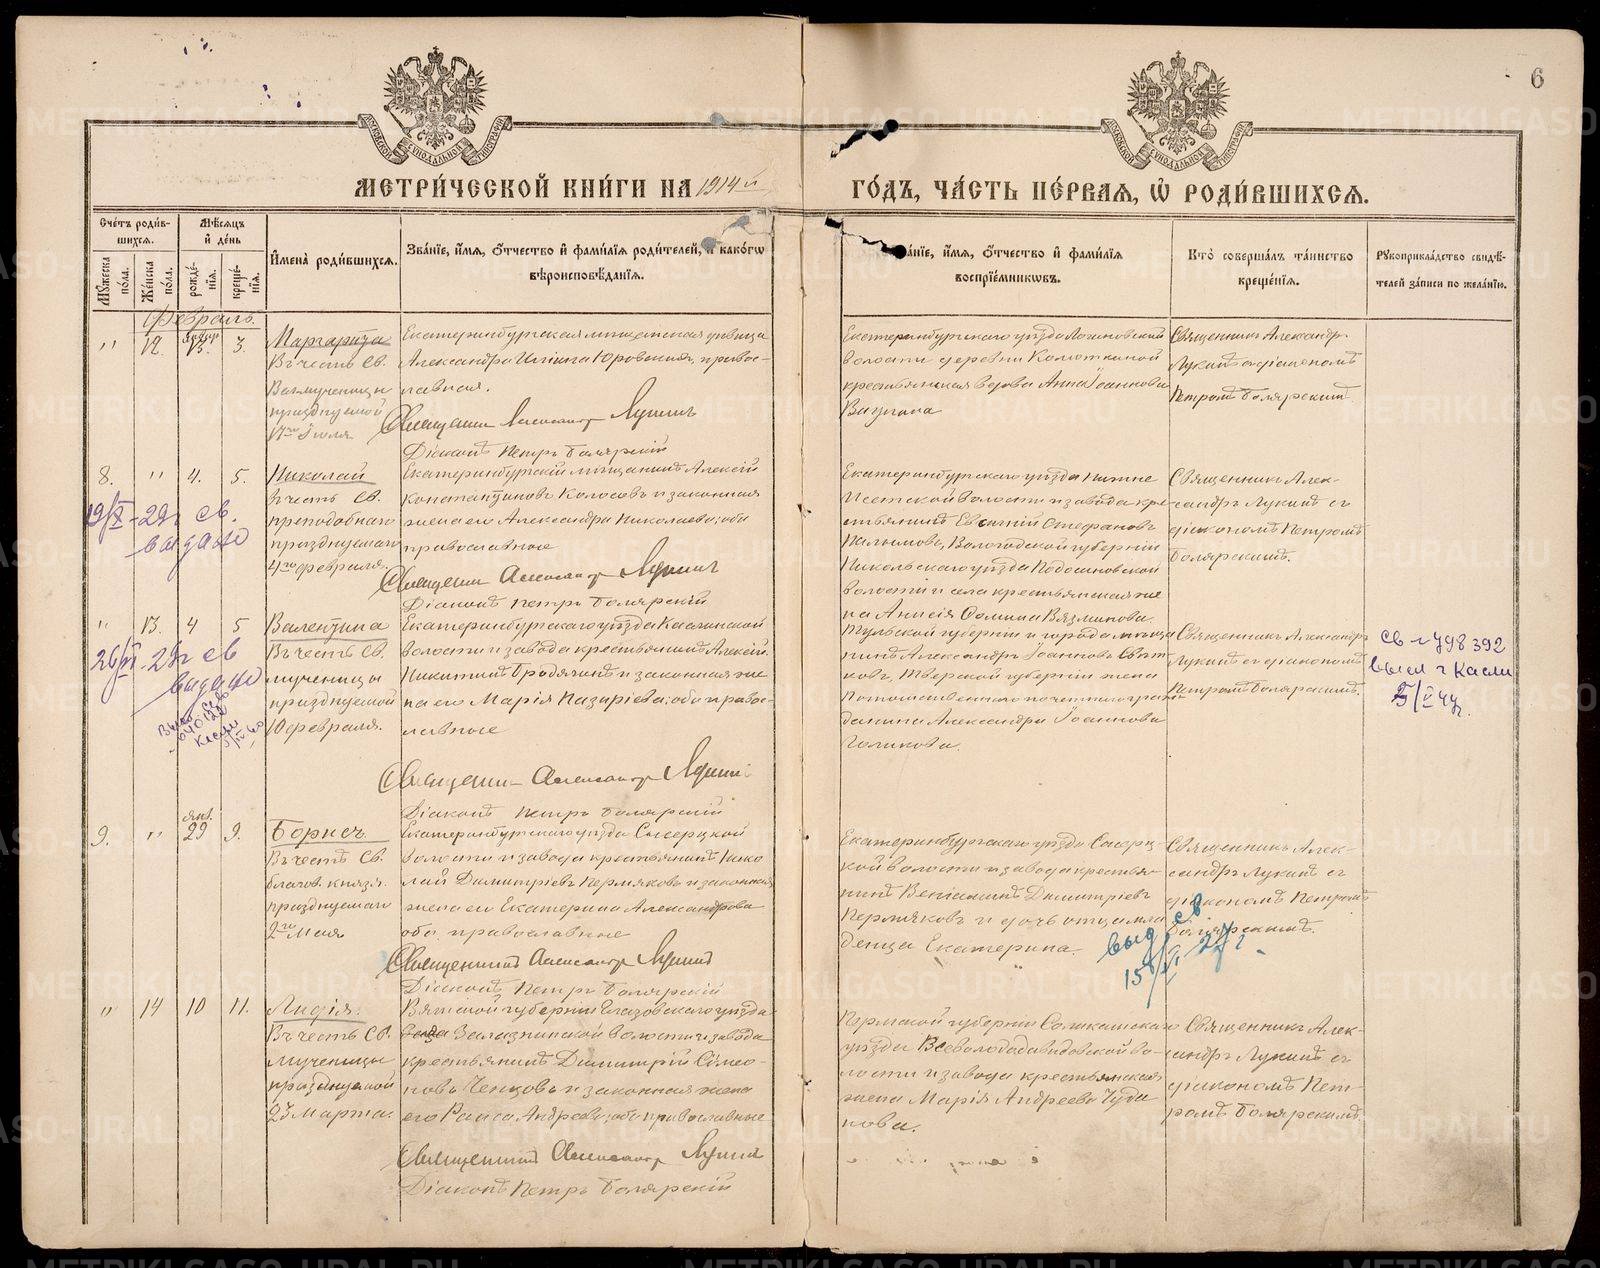 6
МОСКОВСКОЙ СѴНОДАЛЬНОЙ ТИПОГРАФІИ
МОСКОВСКОЙ СѴНОДАЛЬНОЙ ТИПОГРАФІИ
МЕТРИ́ЧЕСКОЙ КНИ́ГИ НА 1914й
ГО́ДЪ, ЧА́СТЬ ПЕ́РВАЯ, Ѡ҆ РОДИ́ВШИХСЯ.
Сче́тъ роди́в-
шихся.
Мѣ́сяцъ
и҆ де́нь
Мꙋ́жеска по́ла.
Же́нска по́ла.
рожде́-нїя.
креще́-нїя.
И҆мена̀ роди́вшихся.
Зва́нїе, и҆́мя, ѻ҆́тчество и҆ фами́лїя роди́телей, и҆ како́гѡ
вѣроисповѣ́данїя.
а́нїе, и҆́мя, ѻ҆́тчество и҆ фами́лїя
воспрїе́мникѡвъ.
Кто̀ соверша́лъ та́инство
креще́нїя.
Рꙋкоприкла́дство свидѣ́-
телей за́писи по жела́нїю.
Февраль.
" 12. 3.
Маргарита
Въ честь Св.
Великомученицы
празднуемой
17го Іюля
Екатеринбургская мещанская девица
Александра Ильина Юровская, право-
славная.
Священникъ Александръ Лукинъ
Діаконъ Петръ Боярскій
Екатеринбургскаго уѣзда
волости деревни
крестьянская вдова Анна Іоаннова
Священникъ Александръ
Лукинъ съ діакономъ
Петромъ Боярскимъ
8. " 4. 5.
Николай
въ честь Св.
преподобнаго
празднуемаго
4го февраля.
Екатеринбургскій мѣщанинъ Алексій
Константиновъ Колосовъ и законная
жена его Александра Николаева; оба
православные
Священникъ Александръ Лукинъ
Діаконъ Петръ Боярскій
Екатеринбургскаго уѣзда Нижне
Исетской волости и завода кре-
стьянинъ Евгеній Стефановъ
Вологодской губерніи
Никольскаго уѣзда Подосиновской
волости и села крестьянская же
на Анисія Фомина Вязминова.
Священникъ Алек-
сандръ Лукинъ съ
діакономъ Петромъ
Боярскимъ.
19/X-29г св.
выдано
" 13. 4 5
Валентина
Въ честь Св.
мученицы
празднуемой
10 февраля.
Екатеринбургскаго уѣзда Каслинской
волости и завода крестьянинъ Алексій
Никитинъ Бродягинъ и законная же
на его Марія Назаріева; оба право-
славные
Священникъ Александръ Лукинъ
Діаконъ Петръ Боярскій
Тульской губерніи и города мѣща
нинъ Александръ Іоанновъ
ковъ, Тверской губерніи жена
Потомственнаго почетнаго граж
данина Александра Іоаннова
Голикова.
Священникъ Александръ
Лукинъ съ діакономъ
Петромъ Боярскимъ.
св-1уч 98392
высл г Касли
5/V 44г.
26/VI-29г св
выдано
9. " янв. 29 9.
Борисъ
Въ честь Св.
благов. князя
празднуемаго
2го Мая
Екатеринбургскаго уѣзда Сысертской
волости и завода крестьянинъ Нико
лай Димитріевъ Пермяковъ и законная
жена его Екатерина Александрова
оба православные
Священникъ Александръ Лукинъ
Діаконъ Петръ Боярскій
Екатеринбургскаго уѣзда Сысерт-
ской волости и завода крестья-
нинъ Веніаминъ Димитріевъ
Пермяковъ и дочь отца мла
денца Екатерина.
Священникъ Алек-
сандръ Лукинъ съ
діакономъ Петромъ
Боярскимъ.
выд св
" 14 10 11.
Лидія.
Въ честь Св.
мученицы
празднуемой
23 Марта.
Вятской губерніи Глазовскаго уѣзда
Залазнинской волости и завода
крестьянинъ Димитрій Симео-
новъ Ченцовъ и законная жена
его Раиса Андреева; оба православные
Священникъ Александръ Лукинъ
Діаконъ Петръ Боярскій
Пермской губерніи Соликамскаго
уѣзда Всеволодовильвенской во-
лости и завода крестьянская
жена Марія Андреева Чуди
нова.
Священникъ Алек-
сандръ Лукинъ съ
діакономъ Пет-
ромъ Боярскимъ
METRIKI.GASO-URAL.RU